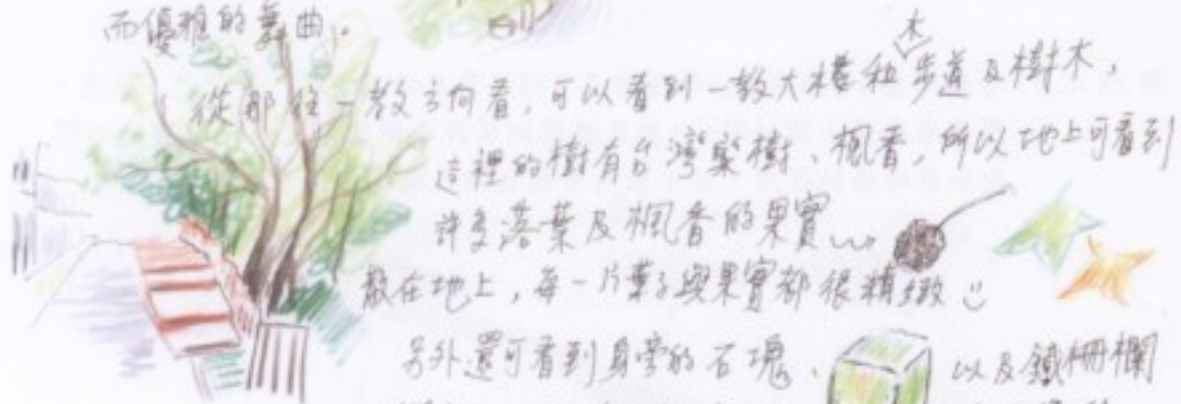 而優雅的舞曲。
從那往一教方向看，可以看到一教大樓和木步道及樹木，
這裡的樹有台灣欒樹、楓香，所以地上可看到
許多落葉及楓香的果實
散在地上，每一片葉子與果實都很精緻
另外還可看到身旁的石塊、以及鐵柵欄